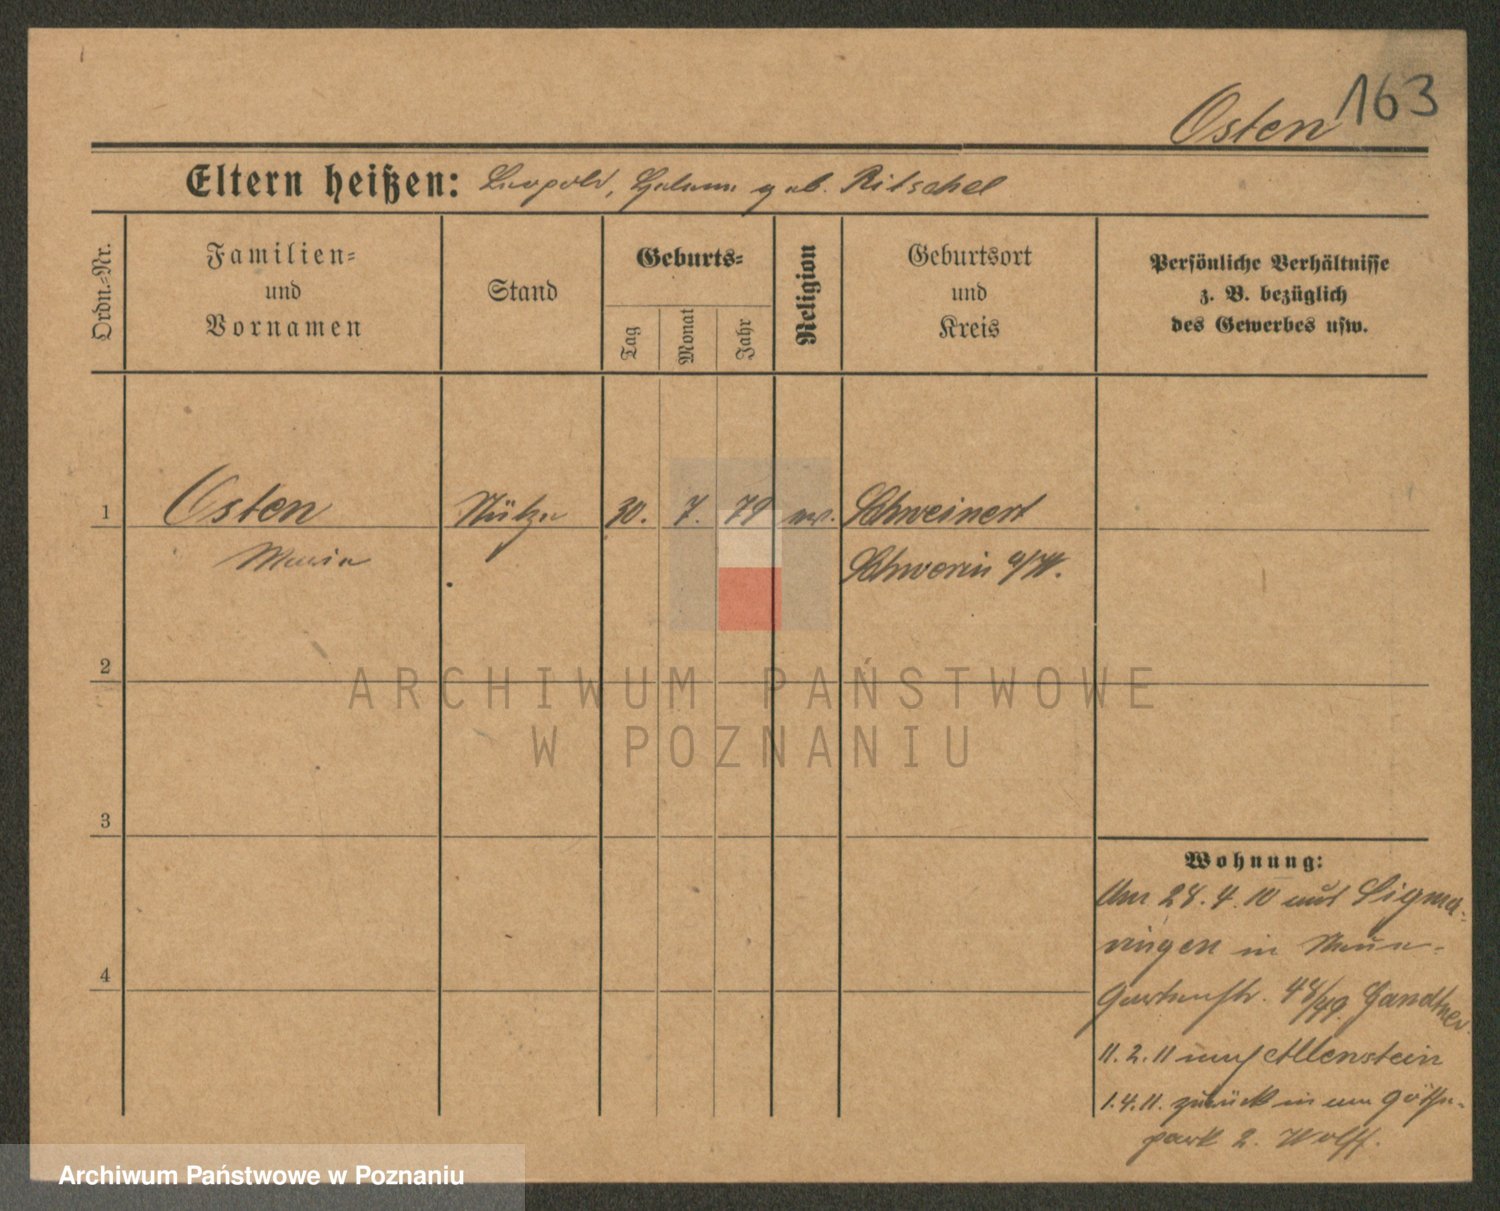 163
Osten
Eltern heißen: Leopold, Helene geb. Ritschel
Ordn.-Nr.
Familien-
und
Vornamen
Stand
Geburts-
Tag
Monat
Jahr
Religion
Geburtsort
und
Kreis
Persönliche Verhältnisse
z. B. bezüglich
des Gewerbes usw.
1 Osten Stütze 30. 7. 79 ev. Schweinert
Maria Schwerin a/W.
2
ARCHIWUM PAŃSTWOWE
W POZNANIU
3
4
Wohnung:
Am 28.4.10 aus Sigma-
ringen in
Gartenstr. 48/49.
11.2.11 nach Allenstein
1.4.11. zurück in
park 2. Wolff.
Archiwum Państwowe w Poznaniu